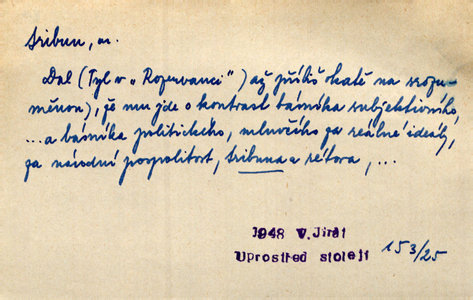 tribun, m.
Dal (Tyl v „Rozervanci“) až příliš okatě na srozu-
měnou), že mu jde o kontrast básníka subjektivního,
...a básníka politického, mluvčího za reálné ideály,
za národní pospolitost, tribuna a rétora, ...
1948 V. Jirát
Uprostřed století 153/25